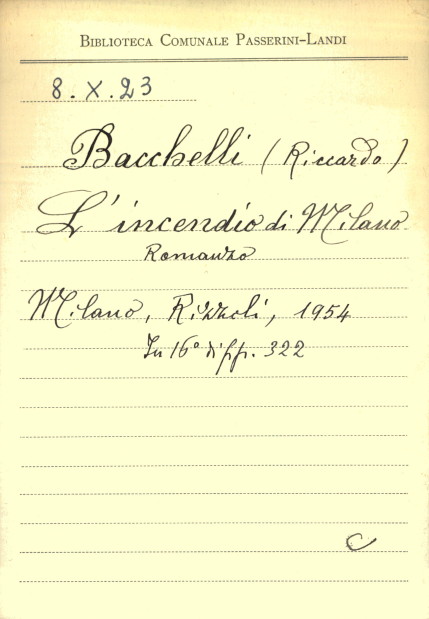 BIBLIOTECA COMUNALE PASSERINI–LANDI
8. X. 23
Bacchelli (Riccardo)
L'incendio di Milano
Romanzo
Milano, Rizzoli, 1954
In 16° di pp. 322
C